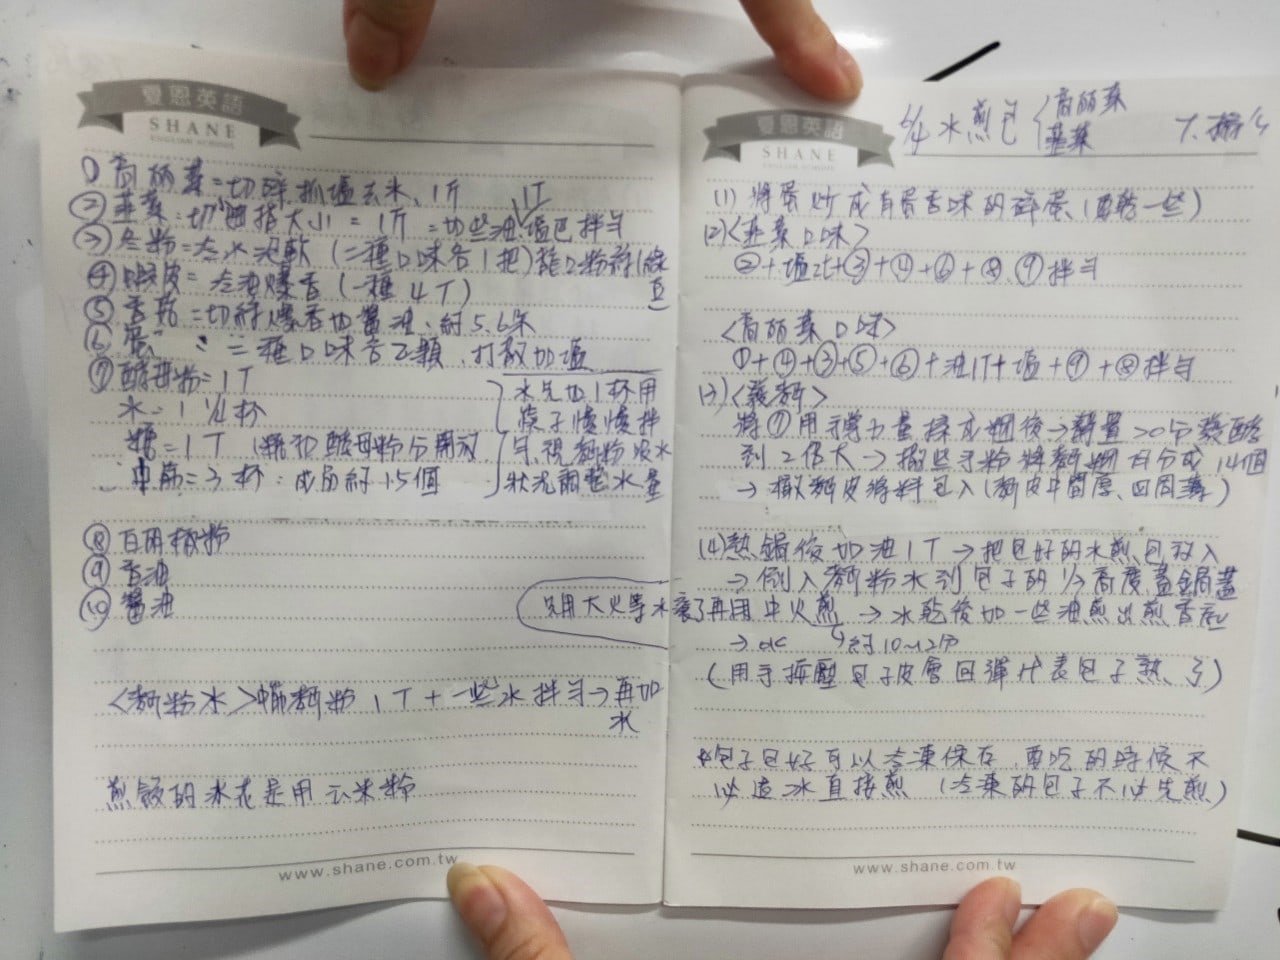 夏恩英語
SHANE
ENGLISH SCHOOL
① 高麗菜=切碎抓塩去水、1斤
② 韭菜:切 姆指大小=1斤=切些油 塩巴拌勻
1T
③ 冬粉=冷水泡軟(二種口味各1把)龍口粉絲1綠
豆
④ 蝦皮=冷油爆香(一種4T)
⑤ 香菇=切絲爆香加醬油、約5.6朵
⑥ 蛋:二種口味各2顆、打散加塩
⑦ 酵母粉=1T
水:1 1/4杯
糖=1T(糖和酵母粉分開放)
中筋=3杯:成品約15個
水先加1杯用
筷子慢慢拌
勻視麵粉吸水
狀況調整水量
⑧ 白胡椒粉
⑨ 香油
⑩ 醬油
<麵粉水>中筋麵粉1T+一些水拌勻→再加
水
煎餃的冰花是用玉米粉
www.shane.com.tw
夏恩英語
SHANE
水煎包{高麗菜
韭菜
(1) 將蛋炒成有蛋香味的碎蛋(要乾一些)
(2)<韭菜口味>
②+塩+③+④+⑥+⑧.⑨拌勻
<高麗菜口味>
①+④+③+⑤+⑥+油1T+塩+⑨+⑧拌勻
(3)<義麵>
將⑦用力量揉成糰後→靜置20分發酵
到2倍大→撒些手粉將麵糰均分成14個
→撖麵皮將料包入(麵皮中間厚、四周薄)
(4)熱鍋後加油1T→把包好的水煎包放入
→倒入麵粉水到包子的1/3高度蓋鍋蓋
先用大火等水滾了再用中火煎→水乾後加一些油煎出煎香底
→ok 約10~12分
(用手按壓包子皮會回彈代表包子熟了)
*包子包好可以冷凍保存、要吃的時候不
必退冰直接煎(冷凍的包子不必先煎)
www.shane.com.tw